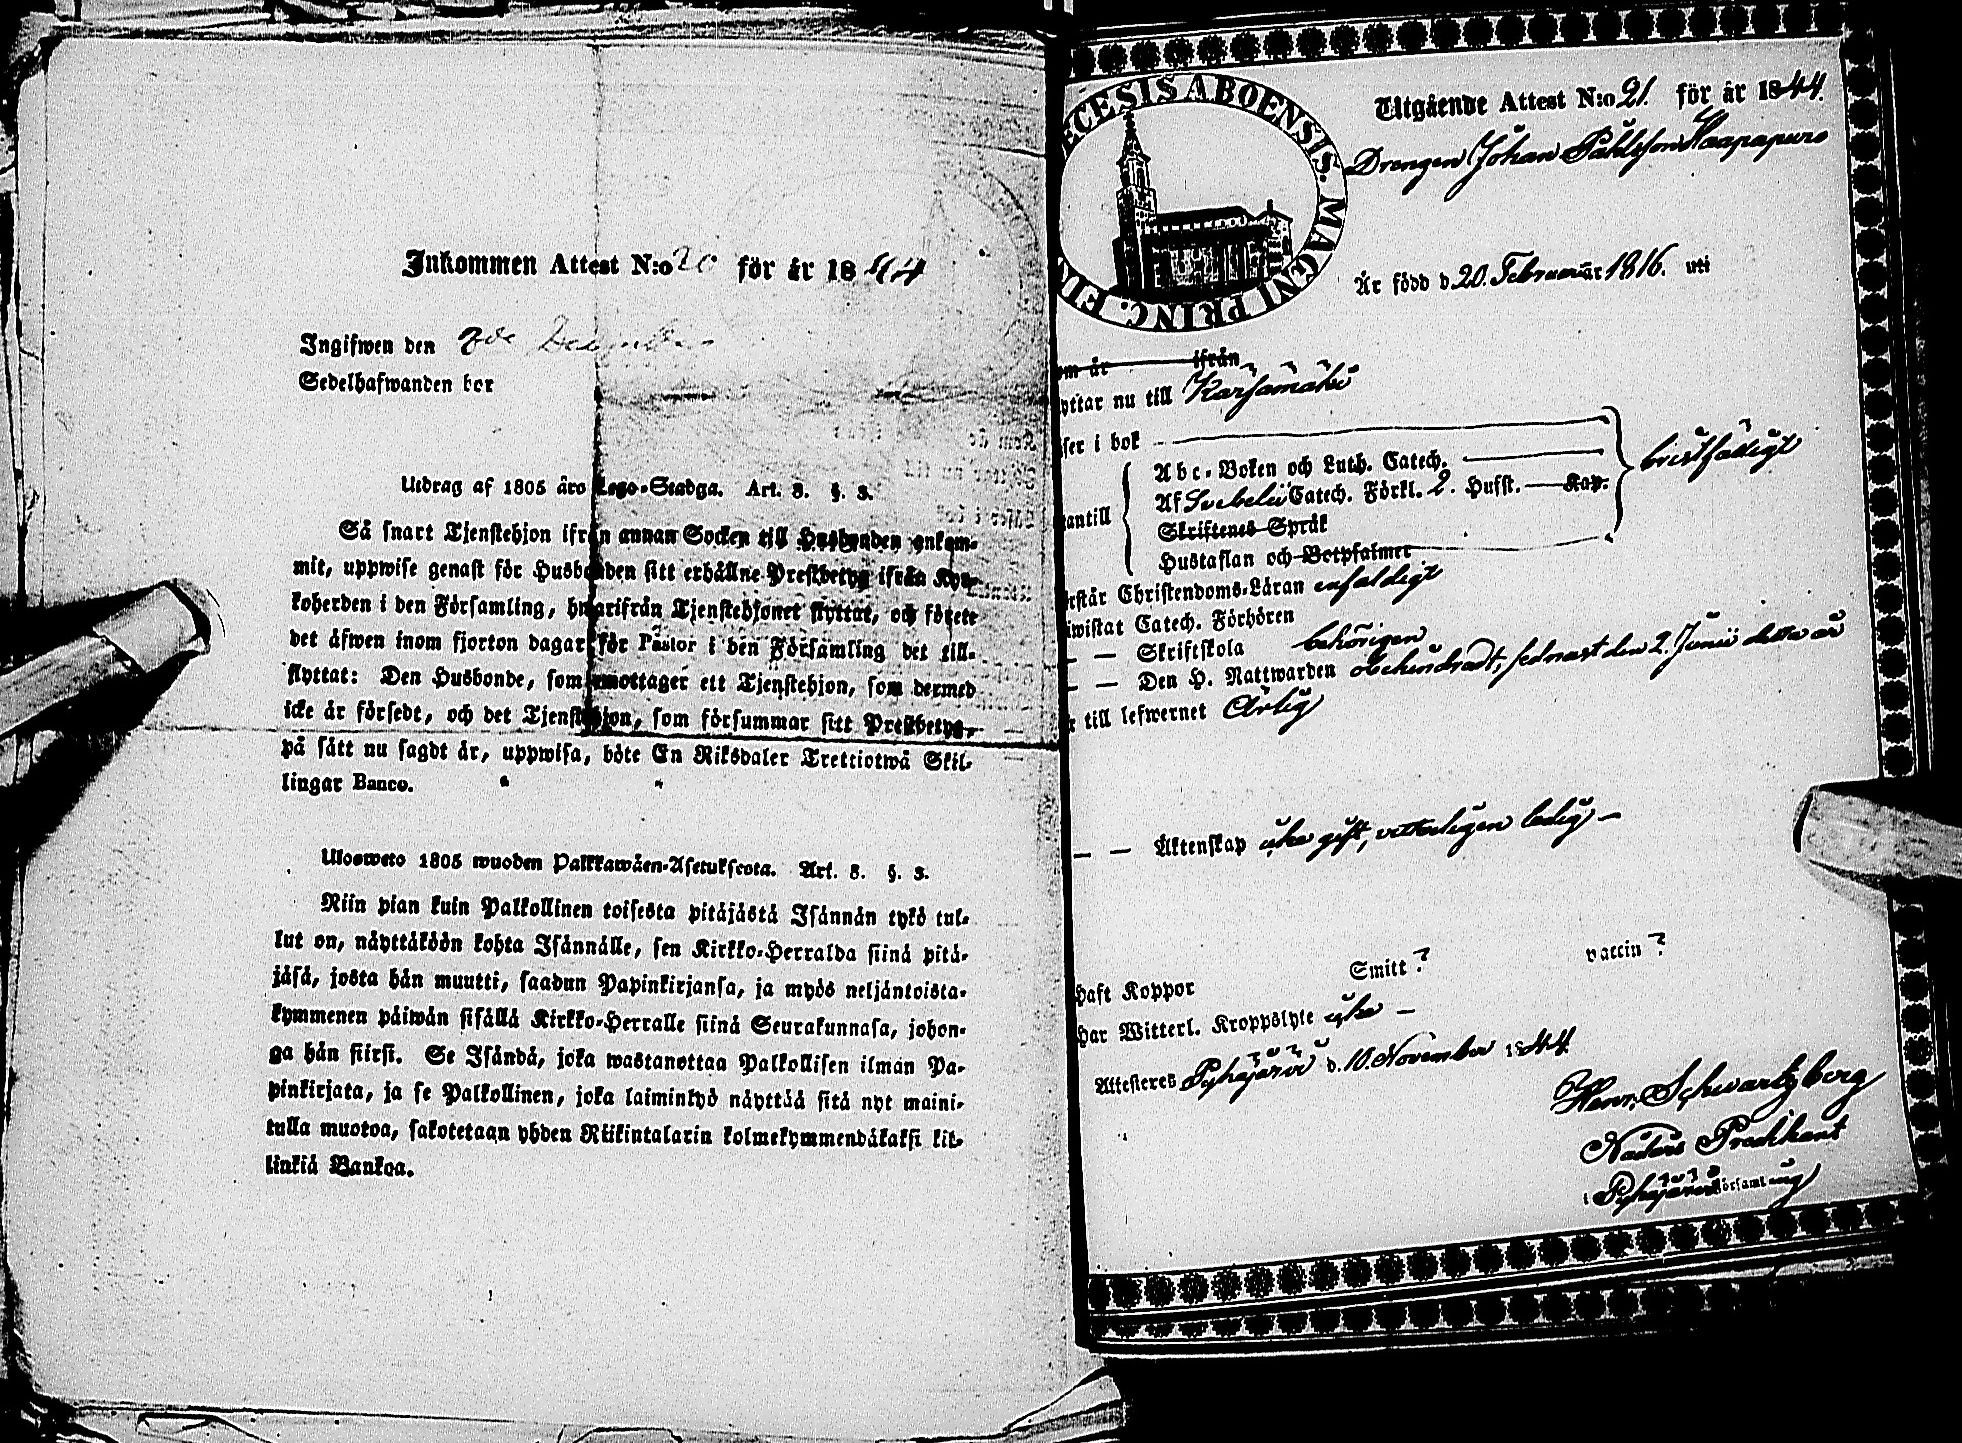 Inkommen Attest N:o 20 för år 1844
Ingifwen den 7de December
Sedelhafwanden bor
Utdrag af 1805 åro Lego-Stadga. Art. 8. §. 3.
Så snart Tjenstehjon ifrån annan Socken till Husbonden ankom-
mit, uppwise genast för Husbonden sitt erhållne Prestbetyg ifrån Kyr-
koherden i den Församling, hwarifrån Tjenstehjonet flyttat, och förete
det åfwen inom fjorton dagar för Pastor i den Församling det till-
flyttat: Den Husbonde, som emottager ett Tjenstehjon, som dermed
icke är försedt, och det Tjenstehjon, som försummar sitt Prestbetyg,
på sått nu sagdt är, uppwisa, böte En Riksdaler Trettiotwå Skil-
lingar Banco.
Ulosweto 1805 wuoden Palkkawåen-Asetuksesta. Art. 8. §. 3.
Niin pian kuin Palkollinen toisesta pitäjästä Isännän tykö tul-
lut on, näyttäköön kohta Isännälle, sen Kirkko-Herralda siinä pitä-
jäsä, josta hän muutti, saadun Papinkirjansa, ja myös neljäntoista-
kymmenen päiwän sisällä Kirkko-Herralle siinä Seurakunnasa, johon-
ga hän siirsi. Se Isändä, joka wastanottaa Palkollisen ilman Pa-
pinkirjata, ja se Palkollinen, joka laiminlyö näyttää sitä nyt maini-
tulla muotoa, sakotetaan yhden Riikintalarin kolmekymmendäkaksi kil-
linkiä Bankoa.
ECESIS ABOENSIS. MAGNI PRINC. FIN
Utgående Attest N:o 21. för år 1844.
Drengen Johan Påhlsson Haapapuro
Är född d 20. Februarii 1816. uti
om är ifrån
yttar nu till Kärsämäki
ser i bok
Abc-Boken och Luth. Catech.
Af Svebelii Catech. Förkl. 2. Hufst. Kap. bristfälligt
antill
Skriftenes Språk
Hustaflan och Botpsalmer
rstår Christendoms-Läran enfaldigt
iwistat Catech. Förhören
— — Skriftskola behörigen
— — Den H. Nattwarden obehindradt, sednast den 2. Junii detta år
till lefwernet Ärlig
— — Äktenskap icke gift, vitterligen ledig —
haft Koppor Smitt ? vaccin ?
har Witterl. Kroppslyte icke —
Attesteres Pyhäjärvi d. 10. November 1844.
Henr. Schwartzberg
Nådårs Predikant
i Pyhäjärvi församling